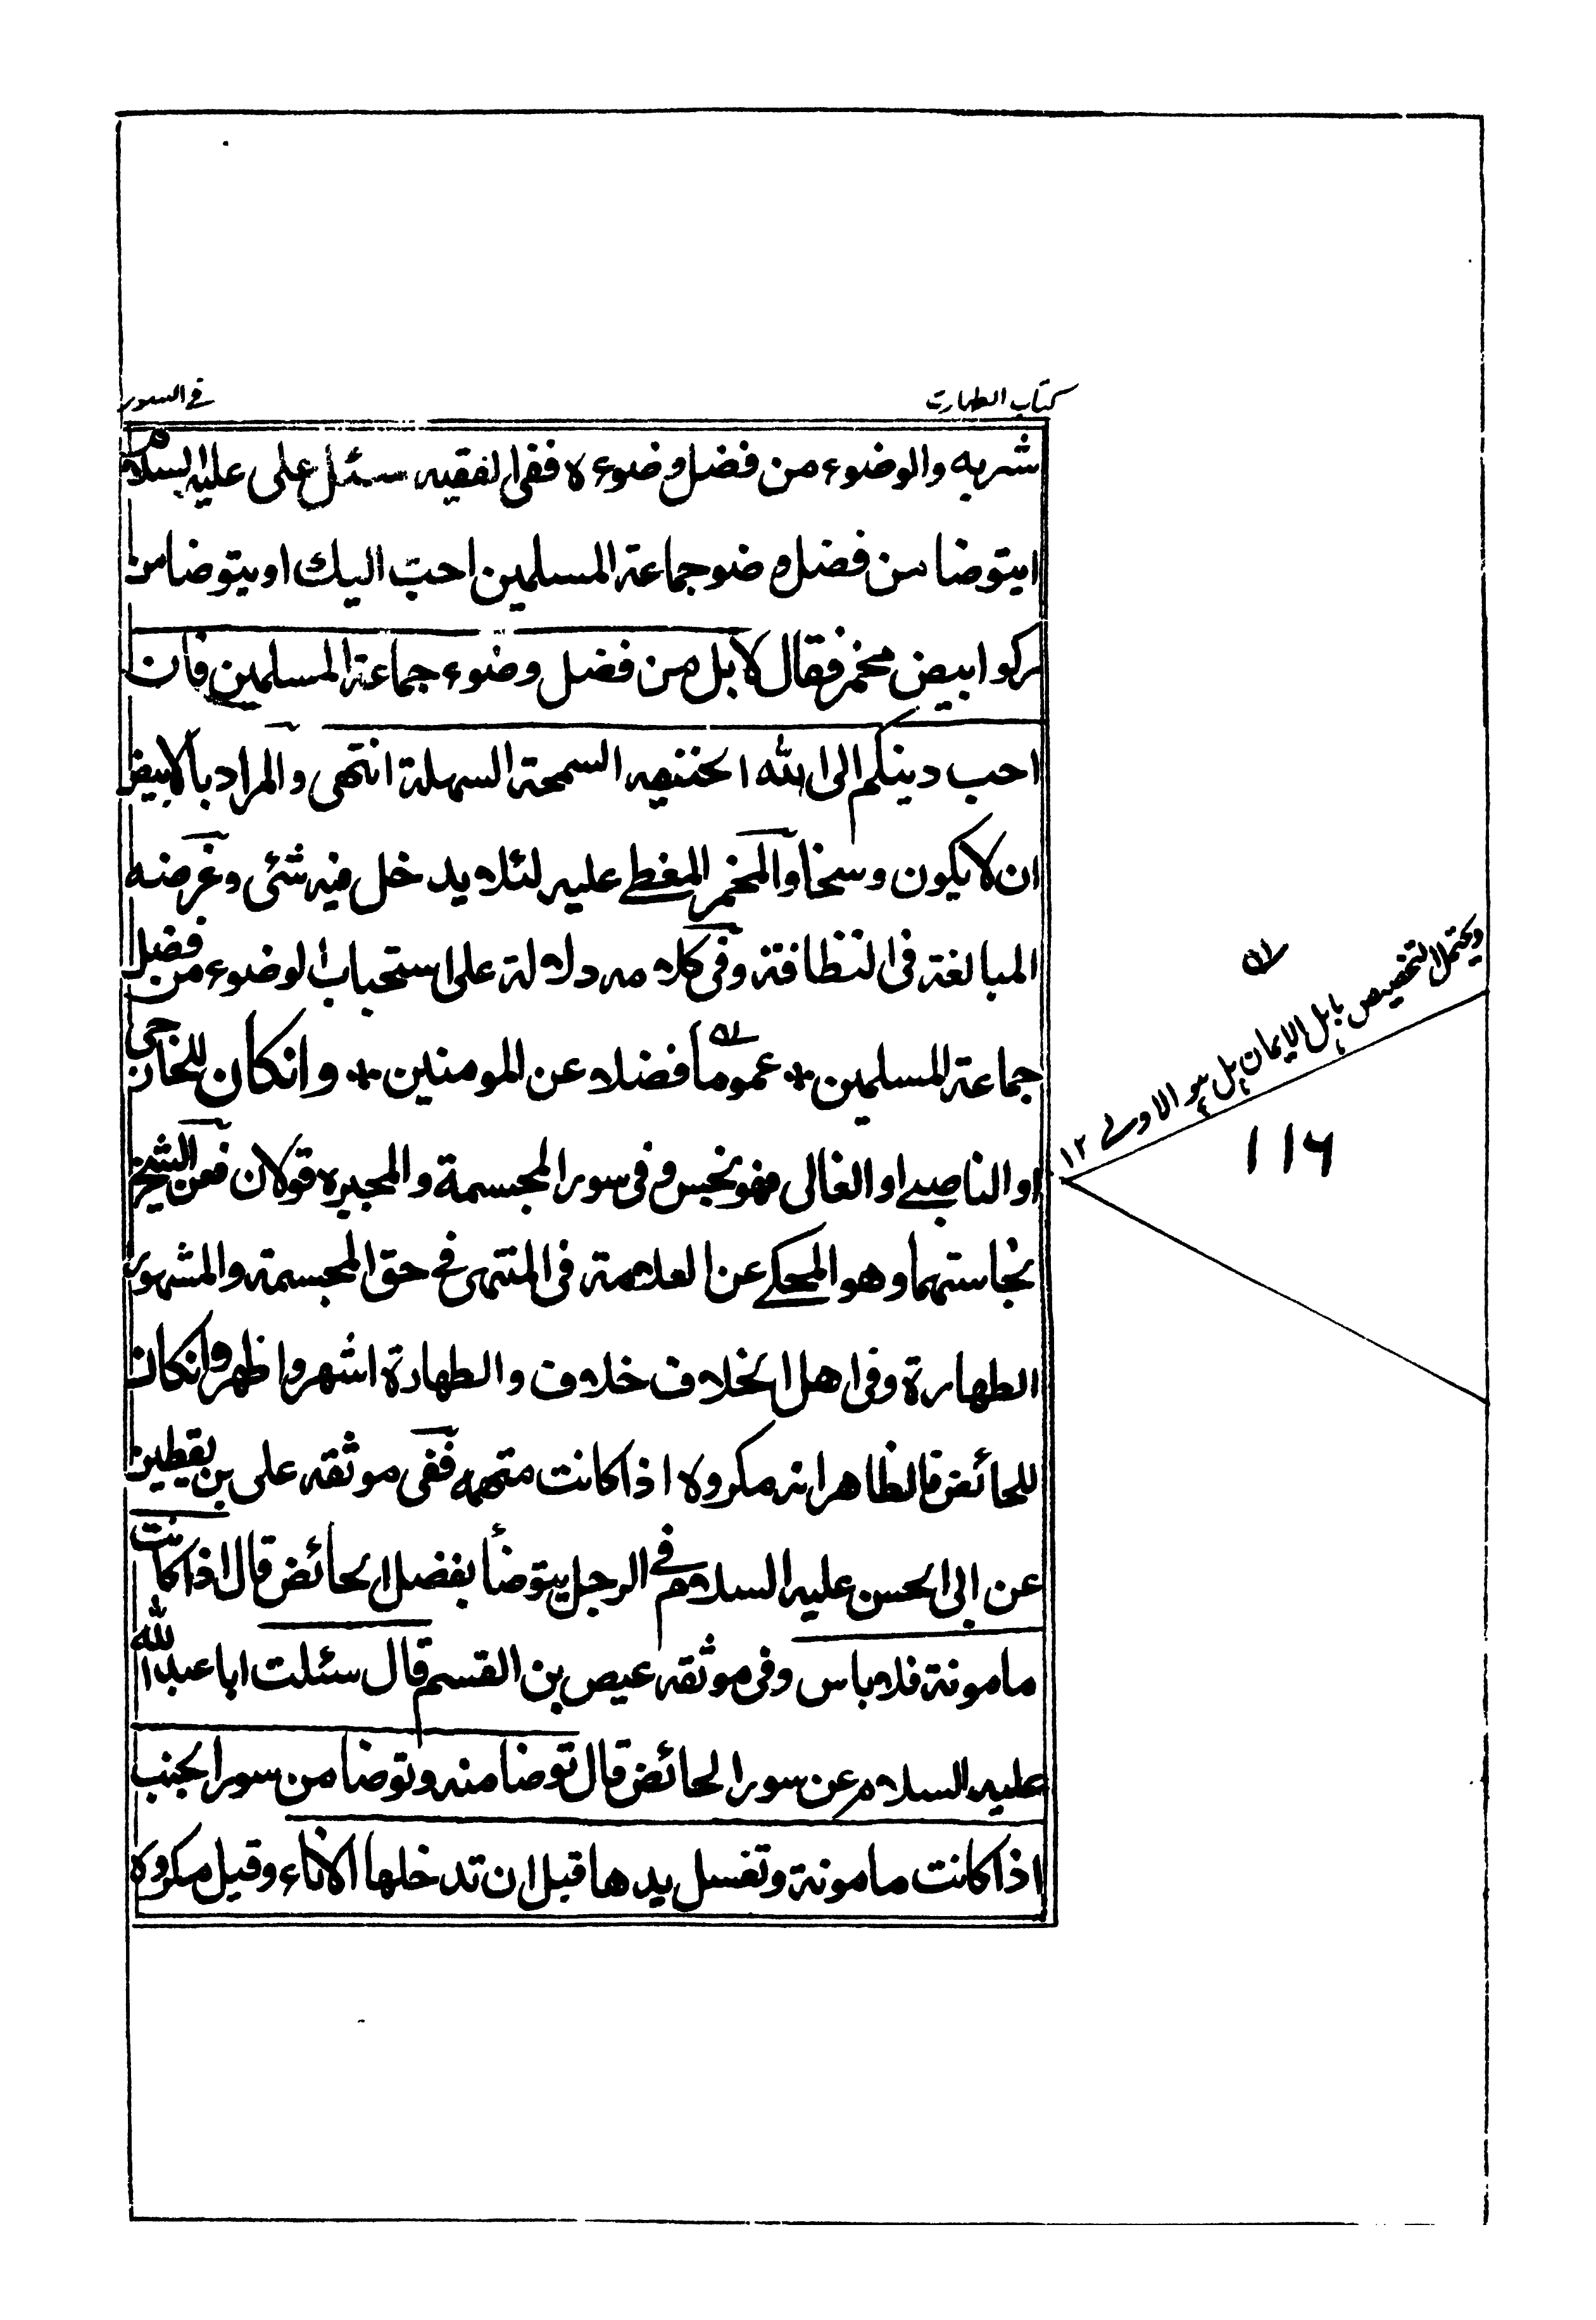 كتاب الطهارت
في السور
شربه والوضوء من فضل وضوءه ففى الفقيه سئل على عليه السلام
ايتوضا من فضل وضو جماعة المسلمين احب اليك او يتوضا من
ركوا بيض مخمر فقال لا بل من فضل وضوء جماعة المسلمين فان
احب دينكم الى الله الحنيفيه السمحة السهلة انتهى والمراد بالابيض
ان لا يكون وسخا والمخمر المغطى عليه لئلا يدخل فيه شئى وغرضه
المبالغة فى النظافة وفى كلامه دلالة على استحباب الوضوء من فضل
جماعة المسلمين * عموما فضلا عن المومنين * وانكان للخارجى
او الناصبى او الغالى فهو نجس وفى سور المجسمة والمجبره قولان فعن الشيخ
نجاستهما وهو المحكى عن العلامة فى المنتهى فى حق المجسمة والمشهور
الطهارة وفى اهل الخلاف خلاف والطهارة اشهر واظهر وانكان
للحائض فالظاهر انه مكروه اذا كانت متهمه ففى موثقه على بن يقطين
عن ابى الحسن عليه السلام فى الرجل يتوضأ بفضل الحائض قال اذا كانت
مامونة فلا باس وفى موثقه عيص بن القسم قال سئلت ابا عبد الله
عليه السلام عن سور الحائض قال توضا منه وتوضا من سور الجنب
اذا كانت مامونة وتغسل يدها قبل ان تدخلها الاناء وقيل مكروه
ويحتمل التخصيص باهل الايمان بل هو الاولى ١٢
116